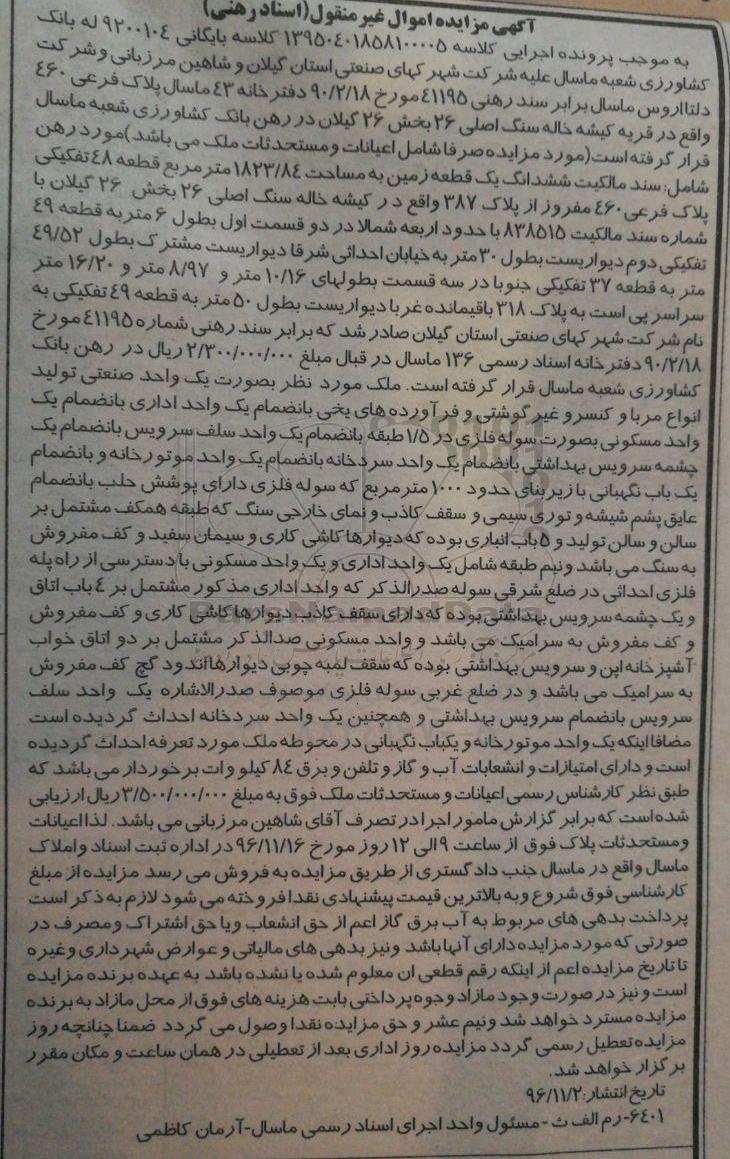 آگهی مزایده اموال غیرمنقول(اسناد رهنی)
به موجب پرونده اجرایی کلاسه ۱۳۹۵۰۴۰۱۸۵۸۱۰۰۰۰۵ کلاسه بایگانی ۹۲۰۰۱۰۴ له بانک
کشاورزی شعبه ماسال علیه شرکت شهرکهای صنعتی استان گیلان و شاهین مرزبانی و شرکت
دلتااروس ماسال برابر سند رهنی ۴۱۱۹۵ مورخ ۹۰/۲/۱۸ دفترخانه ۴۳ ماسال پلاک فرعی ۴۶۰
واقع در قریه کیشه خاله سنگ اصلی ۲۶ بخش ۲۶ گیلان در رهن بانک کشاورزی شعبه ماسال
قرار گرفته است(مورد مزایده صرفا شامل اعیانات و مستحدثات ملک می باشد)مورد رهن
شامل: سند مالکیت ششدانگ یک قطعه زمین به مساحت ۱۸۲۳/۸۴ متر مربع قطعه ۴۸ تفکیکی
پلاک فرعی ۴۶۰ مفروز از پلاک ۳۸۷ واقع در کیشه خاله سنگ اصلی ۲۶ بخش ۲۶ گیلان با
شماره سند مالکیت ۸۳۸۵۱۵ با حدود اربعه شمالا در دو قسمت اول بطول ۶ متر به قطعه ۴۹
تفکیکی دوم دیواریست بطول ۳۰ متر به خیابان احداثی شرقا دیواریست مشترک بطول ۴۹/۵۲
متر به قطعه ۳۷ تفکیکی جنوبا در سه قسمت بطولهای ۱۰/۱۶ متر و ۸/۹۷ متر و ۱۶/۲۰ متر
سراسر پی است به پلاک ۳۱۸ باقیمانده غربا دیواریست بطول ۵۰ متر به قطعه ۴۹ تفکیکی به
نام شرکت شهرکهای صنعتی استان گیلان صادر شد که برابر سند رهنی شماره ۴۱۱۹۵ مورخ
۹۰/۲/۱۸ دفترخانه اسناد رسمی ۱۳۶ ماسال در قبال مبلغ ۲/۳۰۰/۰۰۰/۰۰۰ ریال در رهن بانک
کشاورزی شعبه ماسال قرار گرفته است. ملک مورد نظر بصورت یک واحد صنعتی تولید
انواع مربا و کنسرو غیر گوشتی و فرآورده های یخی بانضمام یک واحد اداری بانضمام یک
واحد مسکونی بصورت سوله فلزی در ۱/۵ طبقه بانضمام یک واحد سلف سرویس بانضمام یک
چشمه سرویس بهداشتی بانضمام یک واحد سردخانه بانضمام یک واحد موتورخانه و بانضمام
یک باب نگهبانی با زیربنای حدود ۱۰۰۰ متر مربع که سوله فلزی دارای پوشش حلب بانضمام
عایق پشم شیشه و توری سیمی و سقف کاذب و نمای خارجی سنگ که طبقه همکف مشتمل بر
سالن و سالن تولید و ۵ باب انباری بوده که دیوارها کاشی کاری و سیمان سفید و کف مفروش
به سنگ می باشد و نیم طبقه شامل یک واحد اداری و یک واحد مسکونی با دسترسی از راه پله
فلزی احداثی در ضلع شرقی سوله صدرالذکر که واحد اداری مذکور مشتمل بر ۴ باب اتاق
و یک چشمه سرویس بهداشتی بوده که دارای سقف کاذب دیوارها کاشی کاری و کف مفروش
و کف مفروش به سرامیک می باشد و واحد مسکونی صدالذکر مشتمل بر دو اتاق خواب
آشپزخانه اپن و سرویس بهداشتی بوده که سقف لمبه چوبی دیوارها اندود گچ کف مفروش
به سرامیک می باشد و در ضلع غربی سوله فلزی موصوف صدرالاشاره یک واحد سلف
سرویس بانضمام سرویس بهداشتی و همچنین یک واحد سردخانه احداث گردیده است
مضافا اینکه یک واحد موتورخانه و یکباب نگهبانی در محوطه ملک مورد تعرفه احداث گردیده
است و دارای امتیازات و انشعابات آب و گاز و تلفن و برق ۸۴ کیلو وات برخوردار می باشد که
طبق نظر کارشناس رسمی اعیانات و مستحدثات ملک فوق به مبلغ ۳/۵۰۰/۰۰۰/۰۰۰ ریال ارزیابی
شده است که برابر گزارش مامور اجرا در تصرف آقای شاهین مرزبانی می باشد. لذا اعیانات
و مستحدثات پلاک فوق از ساعت ۹ الی ۱۲ روز مورخ ۹۶/۱۱/۱۶ در اداره ثبت اسناد و املاک
ماسال واقع در ماسال جنب دادگستری از طریق مزایده به فروش می رسد مزایده از مبلغ
کارشناسی فوق شروع و به بالاترین قیمت پیشنهادی نقدا فروخته می شود لازم به ذکر است
پرداخت بدهی های مربوط به آب برق گاز اعم از حق انشعاب و یا حق اشتراک و مصرف در
صورتی که مورد مزایده دارای آنها باشد و نیز بدهی های مالیاتی و عوارض شهرداری و غیره
تا تاریخ مزایده اعم از اینکه رقم قطعی ان معلوم شده یا نشده باشد به عهده برنده مزایده
است و نیز در صورت وجود مازاد وجوه پرداختی بابت هزینه های فوق از محل مازاد به برنده
مزایده مسترد خواهد شد و نیم عشر و حق مزایده نقدا وصول می گردد ضمنا چنانچه روز
مزایده تعطیل رسمی گردد مزایده روز اداری بعد از تعطیلی در همان ساعت و مکان مقرر
برگزار خواهد شد.
تاریخ انتشار: ۹۶/۱۱/۲
۶۴۰۱-رم الف ث - مسئول واحد اجرای اسناد رسمی ماسال-آرمان کاظمی